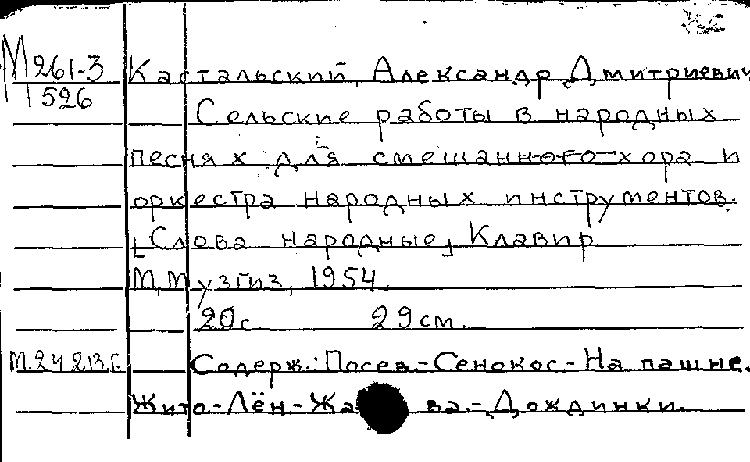 М 261-3 Кастальский, Александр Дмитриевич
526 Сельские работы в народных
песнях для смешанного хора и
оркестра народных инструментов.
[Слова народные] Клавир
М, Музгиз, 1954.
20с 29 см.
М.24 213, Содерж.: Посев - Сенокос - На пашне.
Жито - Лён - - Дождинки.